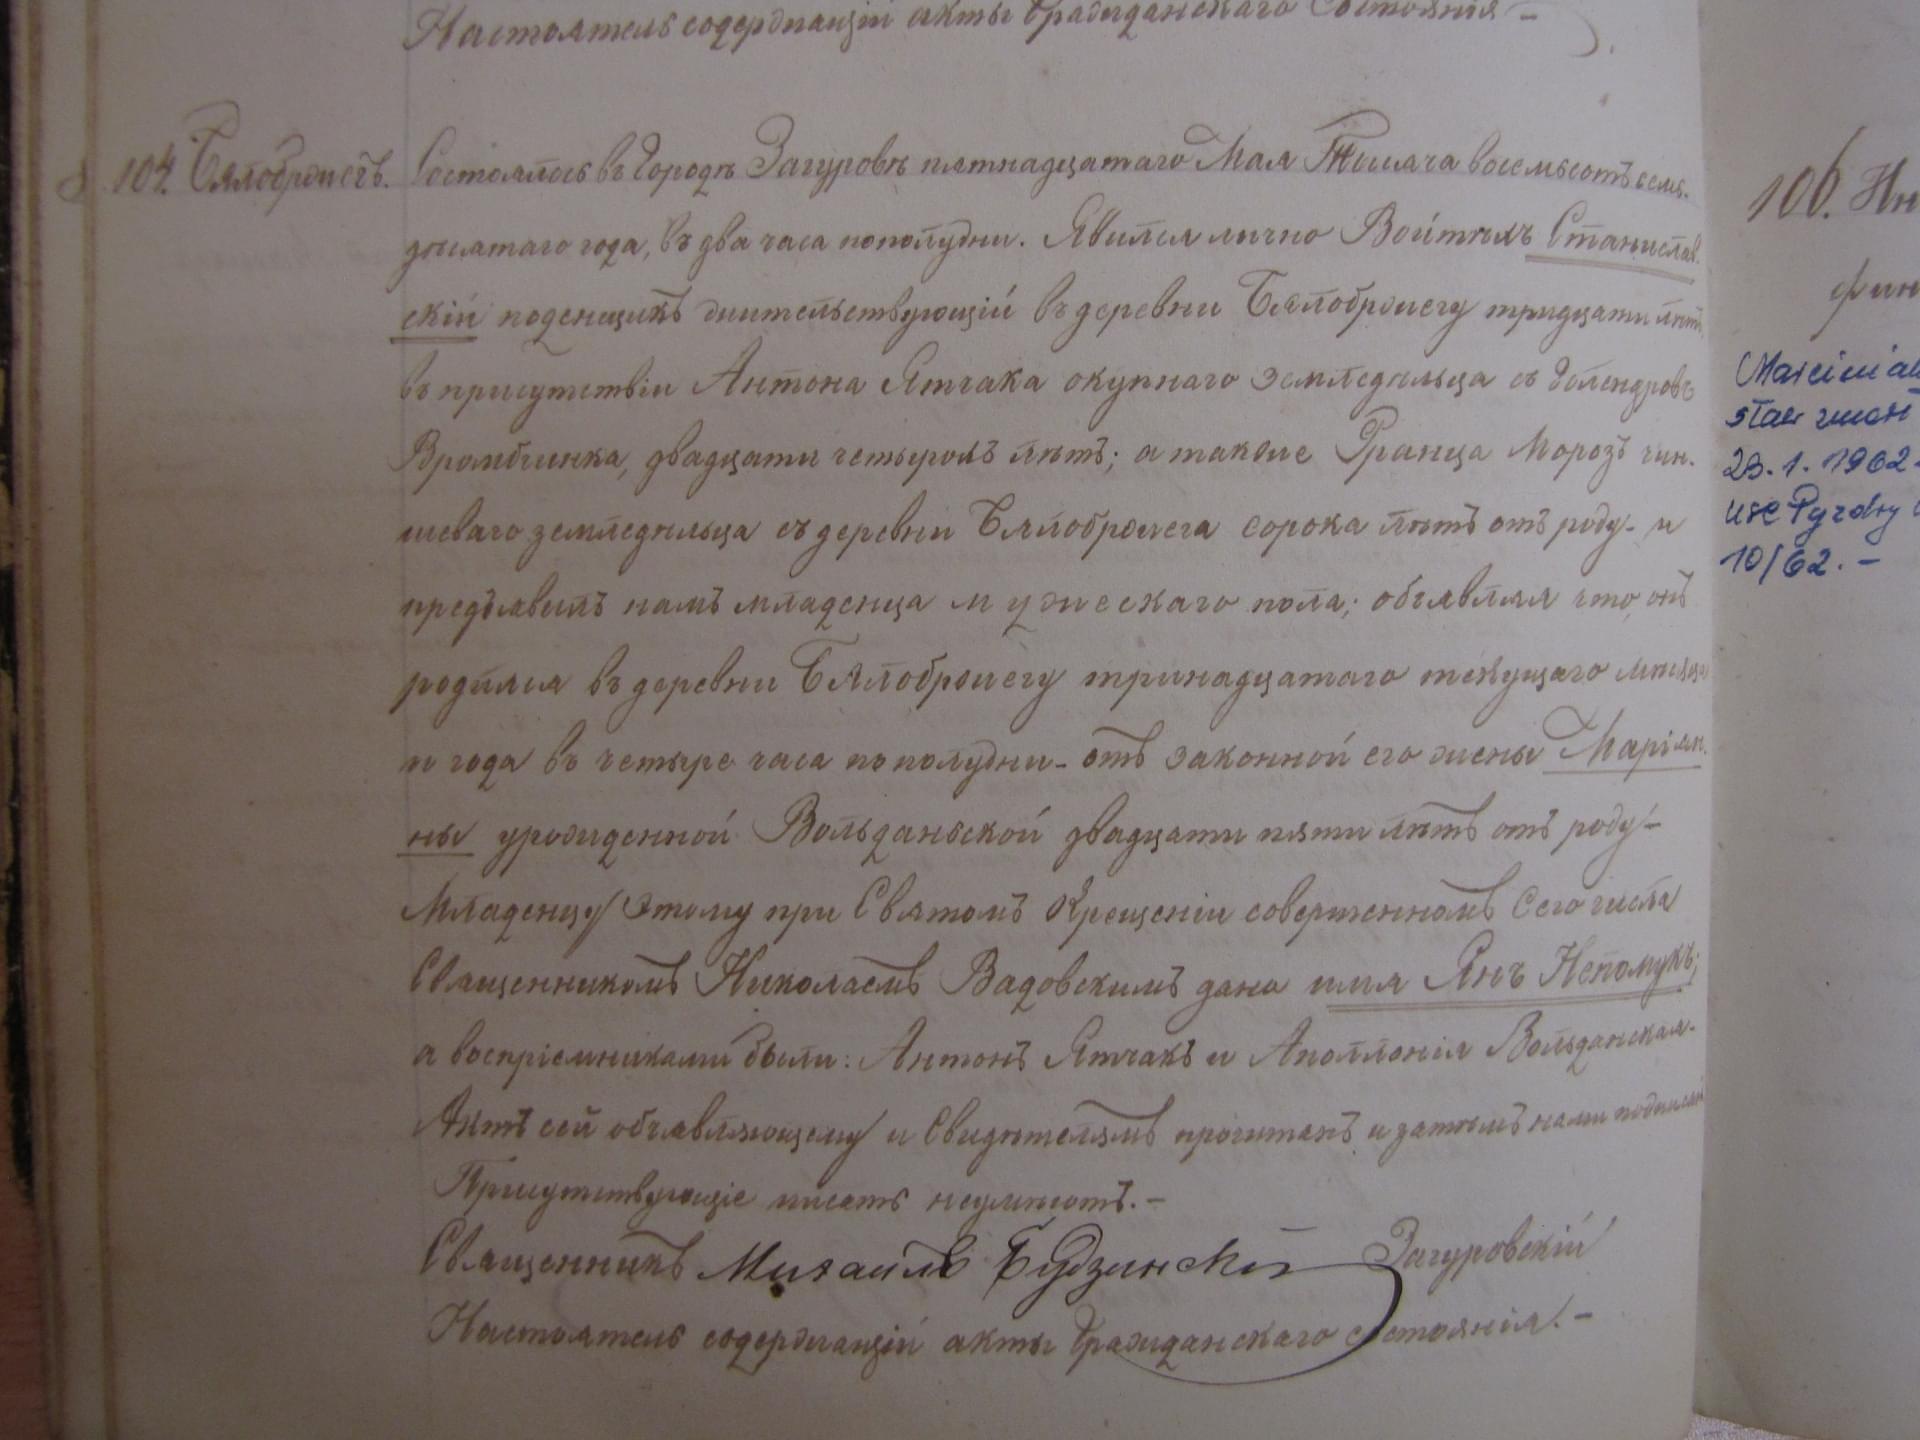 Настоятель содержащій акты Гражданскаго Состоянія –
104. Бялобржегъ. Состоялось въ Городѣ Загуровѣ пятнадцатаго Мая Тысяча восемьсотъ семь-
десятаго года, въ два часа пополудни. Явился лично Войтѣхъ Станислав-
скій поденщикъ жительствующій въ деревни Бялобржегу тридцати лѣтъ,
въ присутствіи Антона Ятчака окупнаго земледѣльца съ Голендровъ
Вромбчинка, двадцати четырохъ лѣтъ; а также Франца Морозъ чин-
шеваго земледѣльца съ деревни Бялобржега сорока лѣтъ отъ роду – и
предъявилъ намъ младенца мужескаго пола; объявляя что, онъ
родился въ деревни Бялобржегу тринадцатаго текущаго мѣсяца
и года въ четыре часа пополудни – отъ законной его жены Маріян-
ны урожденной Вольданьской двадцати пяти лѣтъ отъ роду –
Младенцу этому при Святомъ Крещеніи совершенномъ Сего числа
Священникомъ Николаемъ Вадовскимъ дано имя Янъ Непомукъ;
а воспріемниками были: Антонъ Ятчакъ и Аполлонія Вольданская –
Актъ сей объявляющему и Свидѣтелямъ прочитанъ и затѣмъ нами подписанъ
Присутствующіе писать неумѣютъ. –
Священникъ Михаилъ Будзинскій Загуровскій
Настоятель содержащій акты Гражданскаго состоянія. –
106.
23.1.1962
USC Pyzdry
10/62. –